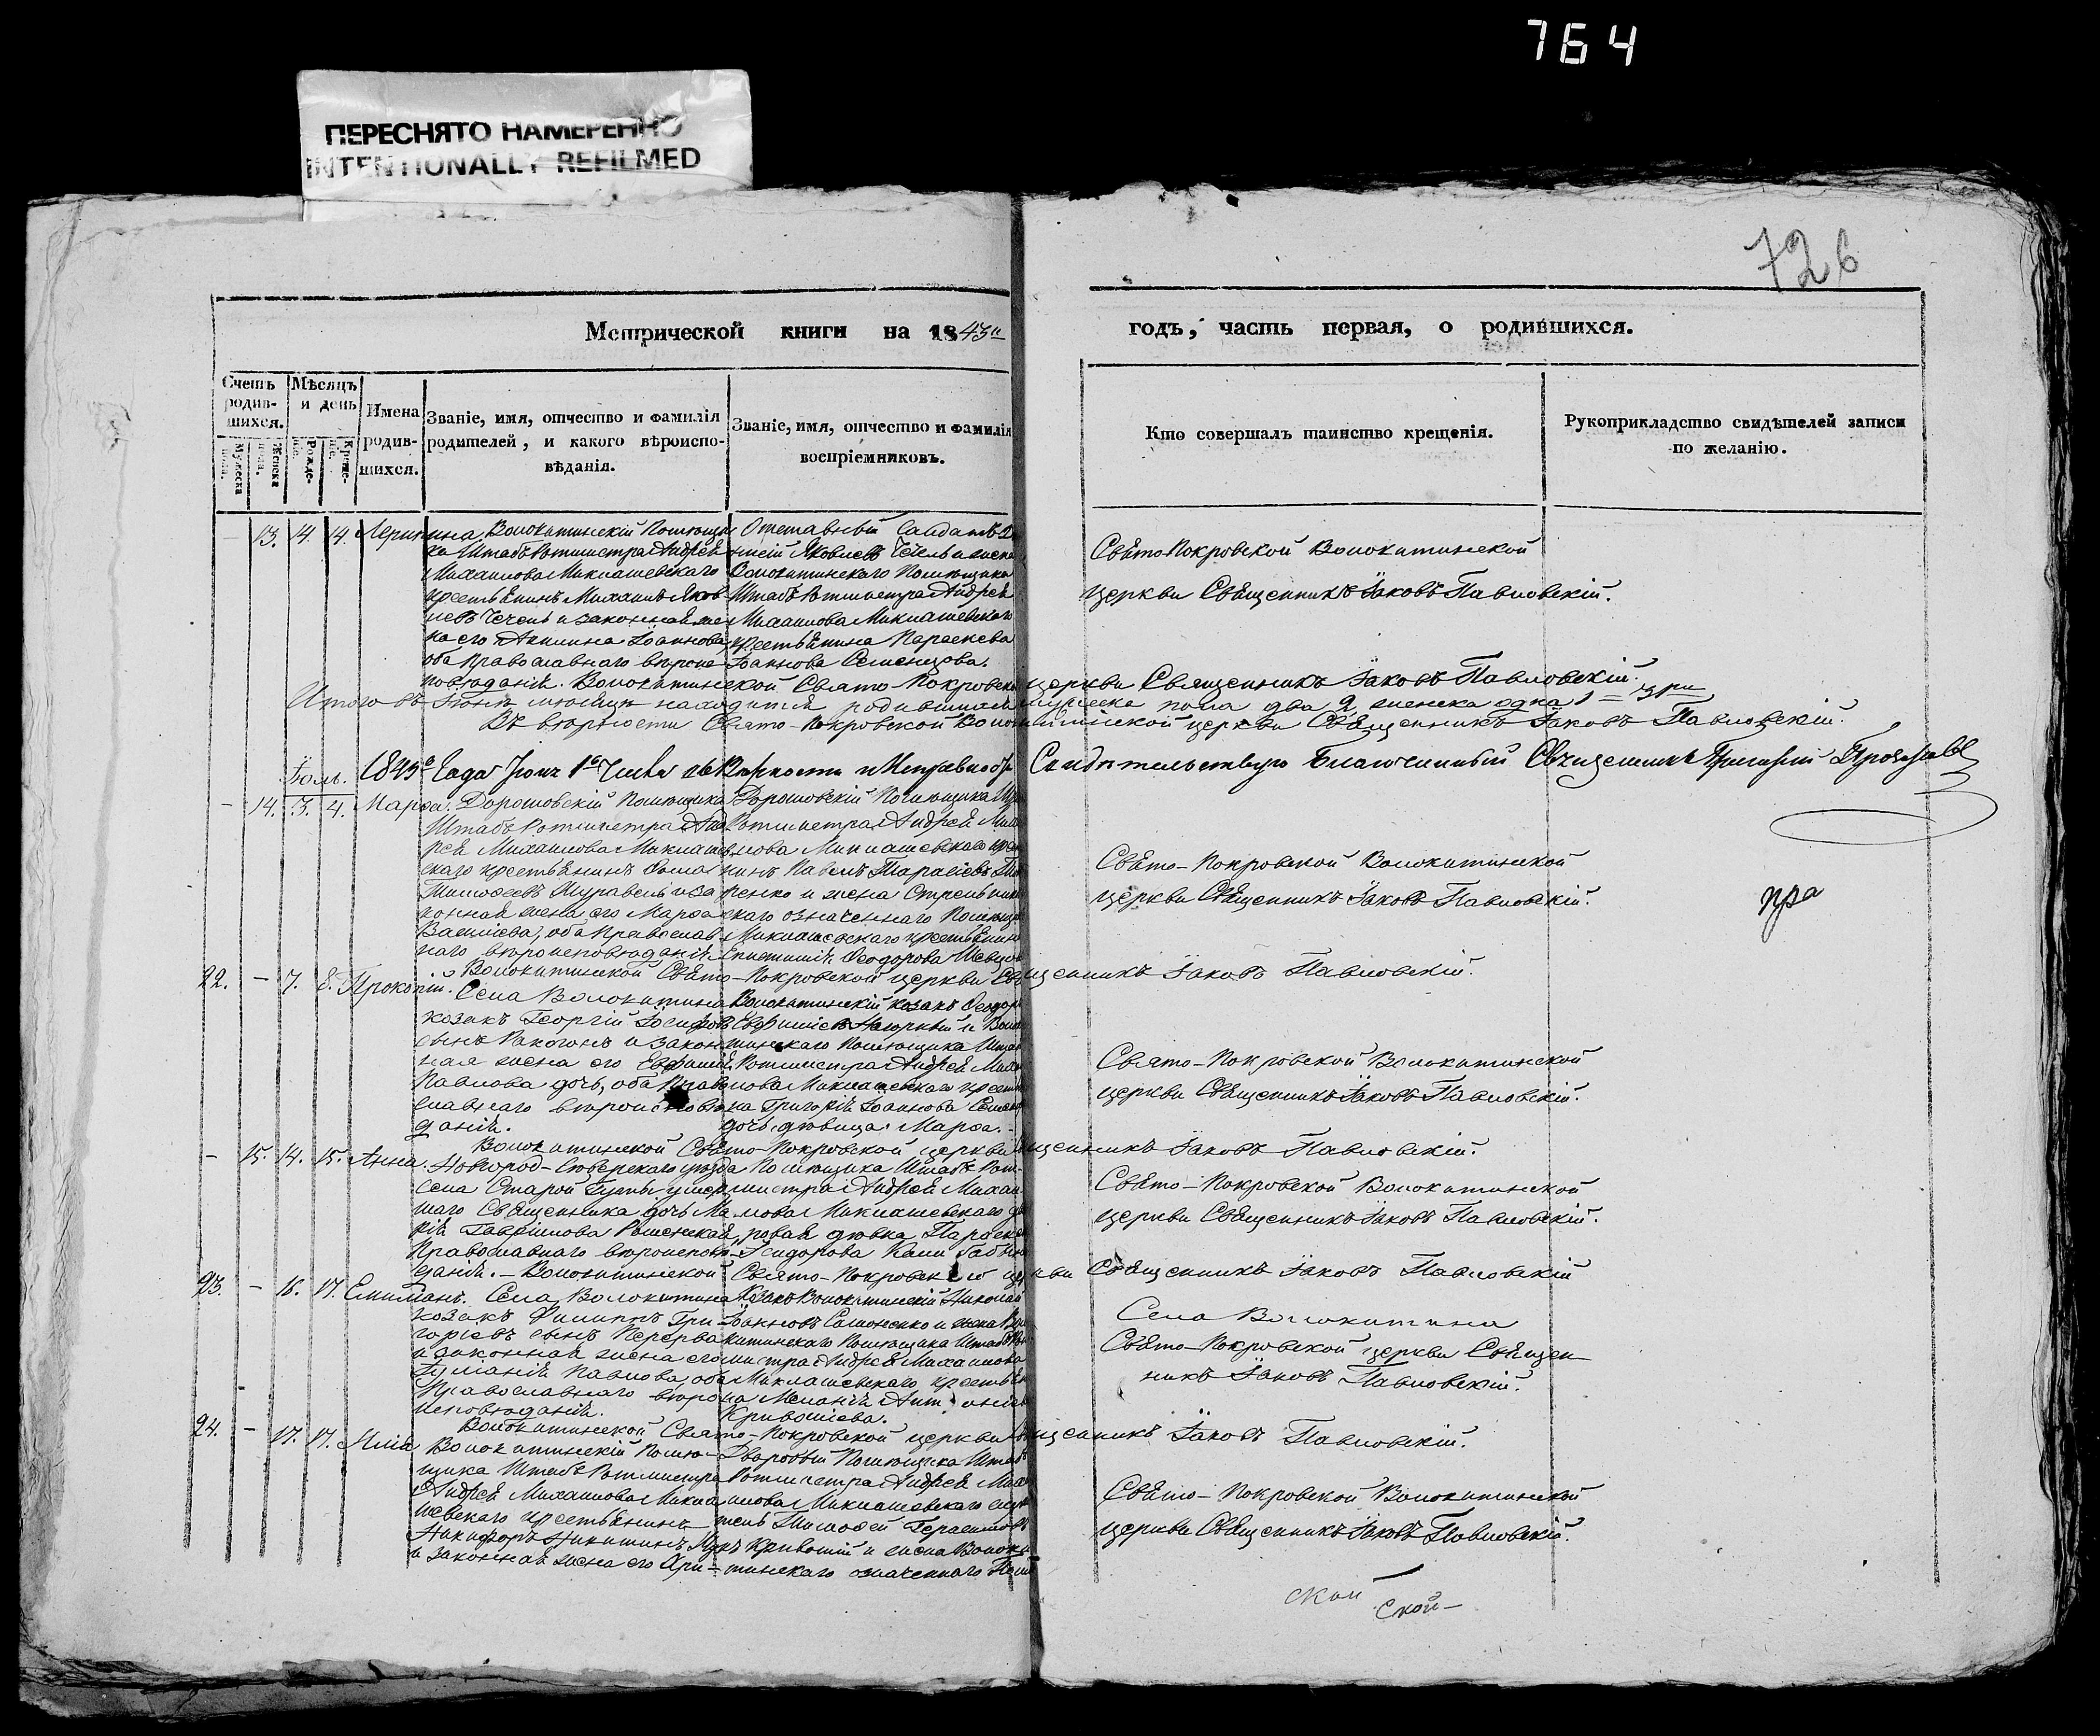 764
ПЕРЕСНЯТО НАМЕРЕННО
INTENTIONALLY REFILMED
726
Метрической книги на 1843й
годъ, часть первая, о родившихся.
Счетъ родив-шихся.
Мужеска пола.
Женска пола.
Мѣсяцъ и день
Рожде-нія.
Креще-нія.
Имена родив-шихся.
Званіе, имя, отчество и фамилія
родителей, и какого вѣроиспо-
вѣданія.
Званіе, имя, отчество и фамилія
воспріемниковъ.
Кто совершалъ таинство крещенія.
Рукоприкладство свидѣтелей записи
по желанію.
— 13. 14. 14.
Волокитинскій Помѣщи
ка Штабъ Ротмистра Андрея
Михаилова Миклашевскаго
крестьянинъ Михаилъ Яков
левъ Чечель и законная же
на его Акилина Іоаннова,
оба православнаго вѣроис
повѣданія.
Отставный Салдатъ
Яковлевъ Чечель и жена
Волокитинскаго Помѣщика
Штабъ Ротмистра Андрея
Михаилова Миклашевскаго
крестьянина Параскева
Іоаннова Семенцова.
Свято Покровской Волокитинской
церкви Священникъ Іаковъ Павловскій.
Волокитинской Свято-Покровской церкви Священникъ Іаковъ Павловскій.
Итого въ Іюнѣ мѣсяцѣ находится родившихся мужеска пола два 2 женска одна 1 = три
Въ вѣрности Свято-Покровской Волокитинской церкви Священникъ Іаковъ Павловскій.
Іюль. 1843го Года Іюля 1го Числа
Свидѣтельствую Благочинный Священникъ Григорій
— 14. 3. 4. Марѳа.
Дорошовскій Помѣщика
Штабъ Ротмистра Анд
рея Михаилова Миклашев
скаго крестьянинъ Ѳома
Тимоѳеевъ Журавель и за
конная жена его Марѳа
Васильева, оба Православ
наго вѣроисповѣданія.
Дорошовскій Помѣщика
Ротмистра Андрея Миха
илова Миклашевскаго крес
нинъ Павелъ Тарасіевъ
ренко и жена Стрельник
скаго означеннаго Помѣщи
Миклашевскаго крестьянин
Епистимія Ѳеодорова Шевцов
Свято-Покровской Волокитинской
церкви Священникъ Іаковъ Павловскій.
пра
Волокитинской Свято-Покровской церкви Священникъ Іаковъ Павловскій.
22. — 7. 8. Прокопій.
Села Волокитина
козакъ Георгій Іосифов
сынъ Ракогонъ и закон
ная жена его Евфимія
Павлова дочь, оба Право
славнаго вѣроисповѣ
данія.
Волокитинскій козакъ Ѳеодор
Евфиміевъ Нагорный и Воло
тинскаго Помѣщика Штаб
Ротмистра Андрея Миха
лова Миклашевскаго кресть
на Григорія Іоаннова
дочь дѣвица Марѳа.
Свято-Покровской Волокитинской
церкви Священникъ Іаковъ Павловскій.
Волокитинской Свято-Покровской церкви Священникъ Іаковъ Павловскій.
— 15. 14. 15. Анна.
Новгород-Сѣверскаго уѣзда
села Старой Гуты умер
шаго Священника дочь Ма
рія Гавріилова
Православнаго вѣроисповѣ
данія. —
Помѣщика Штабъ Рот-
мистра Андрея Михаи
лова Миклашевскаго д
ровая дѣвка Параске
Ѳеидорова
Свято-Покровской Волокитинской
церкви Священникъ Іаковъ Павловскій.
Волокитинской Свято-Покровской церкви Священникъ Іаковъ Павловскій
23. — 16. 17. Емиліанъ.
Села Волокитина
козакъ Филиппъ Гри
горіевъ сынъ Перерва
и законная жена его
Іуліанія Павлова, оба
Православнаго вѣро
исповѣданія.
Козакъ Волокитинскій Николай
Іоанновъ Самоненко и жена Воло
китинскаго Помѣщика Штабъ Рот
мистра Андрея Михаилова
Миклашевскаго крестьян
на Меланія
Кривошіева.
Села Волокитина
Свято-Покровской церкви Священ-
никъ Іаковъ Павловскій.
Волокитинской Свято-Покровской церкви Священникъ Іаковъ Павловскій.
24. — 17. 17. Илія
Волокитинскій Помѣ-
щика Штабъ Ротмистра
Андрея Михаилова Микла
шевскаго крестьянинъ
Никифоръ Никитинъ
и законная жена его Хри-
Дворовый Помѣщика Штабъ
Ротмистра Андрея Миха
илова Миклашевскаго слу
тель Тимоѳей Герасимовъ
Кривошій и жена Волоки
тинскаго означеннаго Пом
Свято-Покровской Волокитинской
церкви Священникъ Іаковъ Павловскій.
ской
ской-